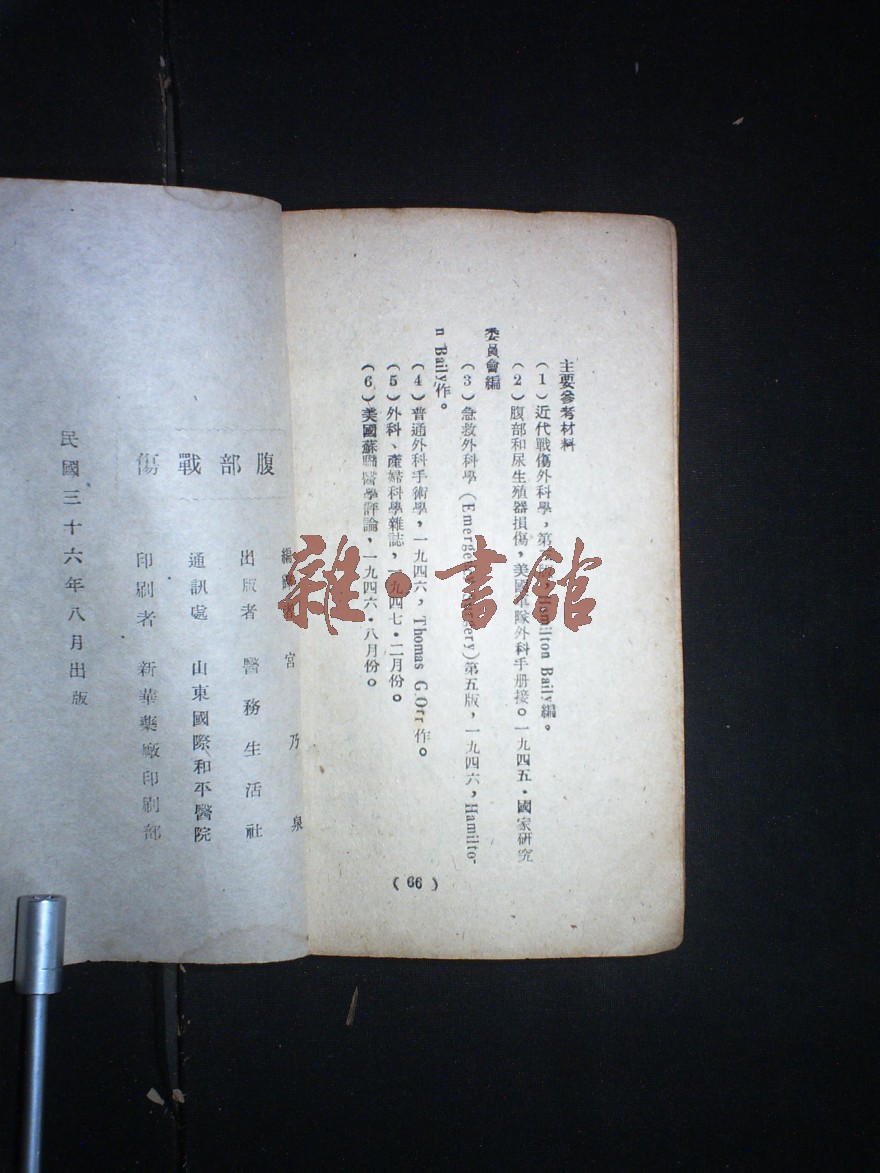 主要參考材料
(1)近代戰傷外科學,第 Hamilton Baily編。
(2)腹部和尿生殖器損傷,美國 隊外科手册接。一九四五·國家研究
委員會編
(3)急救外科學(Emergency Surgery)第五版,一九四六,Hamilto-
n Baily作。
(4)普通外科手術學,一九四六,Thomas G.Orr作。
(5)外科、產婦科學雜誌,一九四七·二月份。
(6)美國蘇聯醫學評論,一九四六·八月份。
(66)
腹部戰傷
編 者 宮乃泉
出版者 醫務生活社
通訊處 山東國際和平醫院
印刷者 新華藥廠印刷部
民國三十六年八月出版
雜·書館